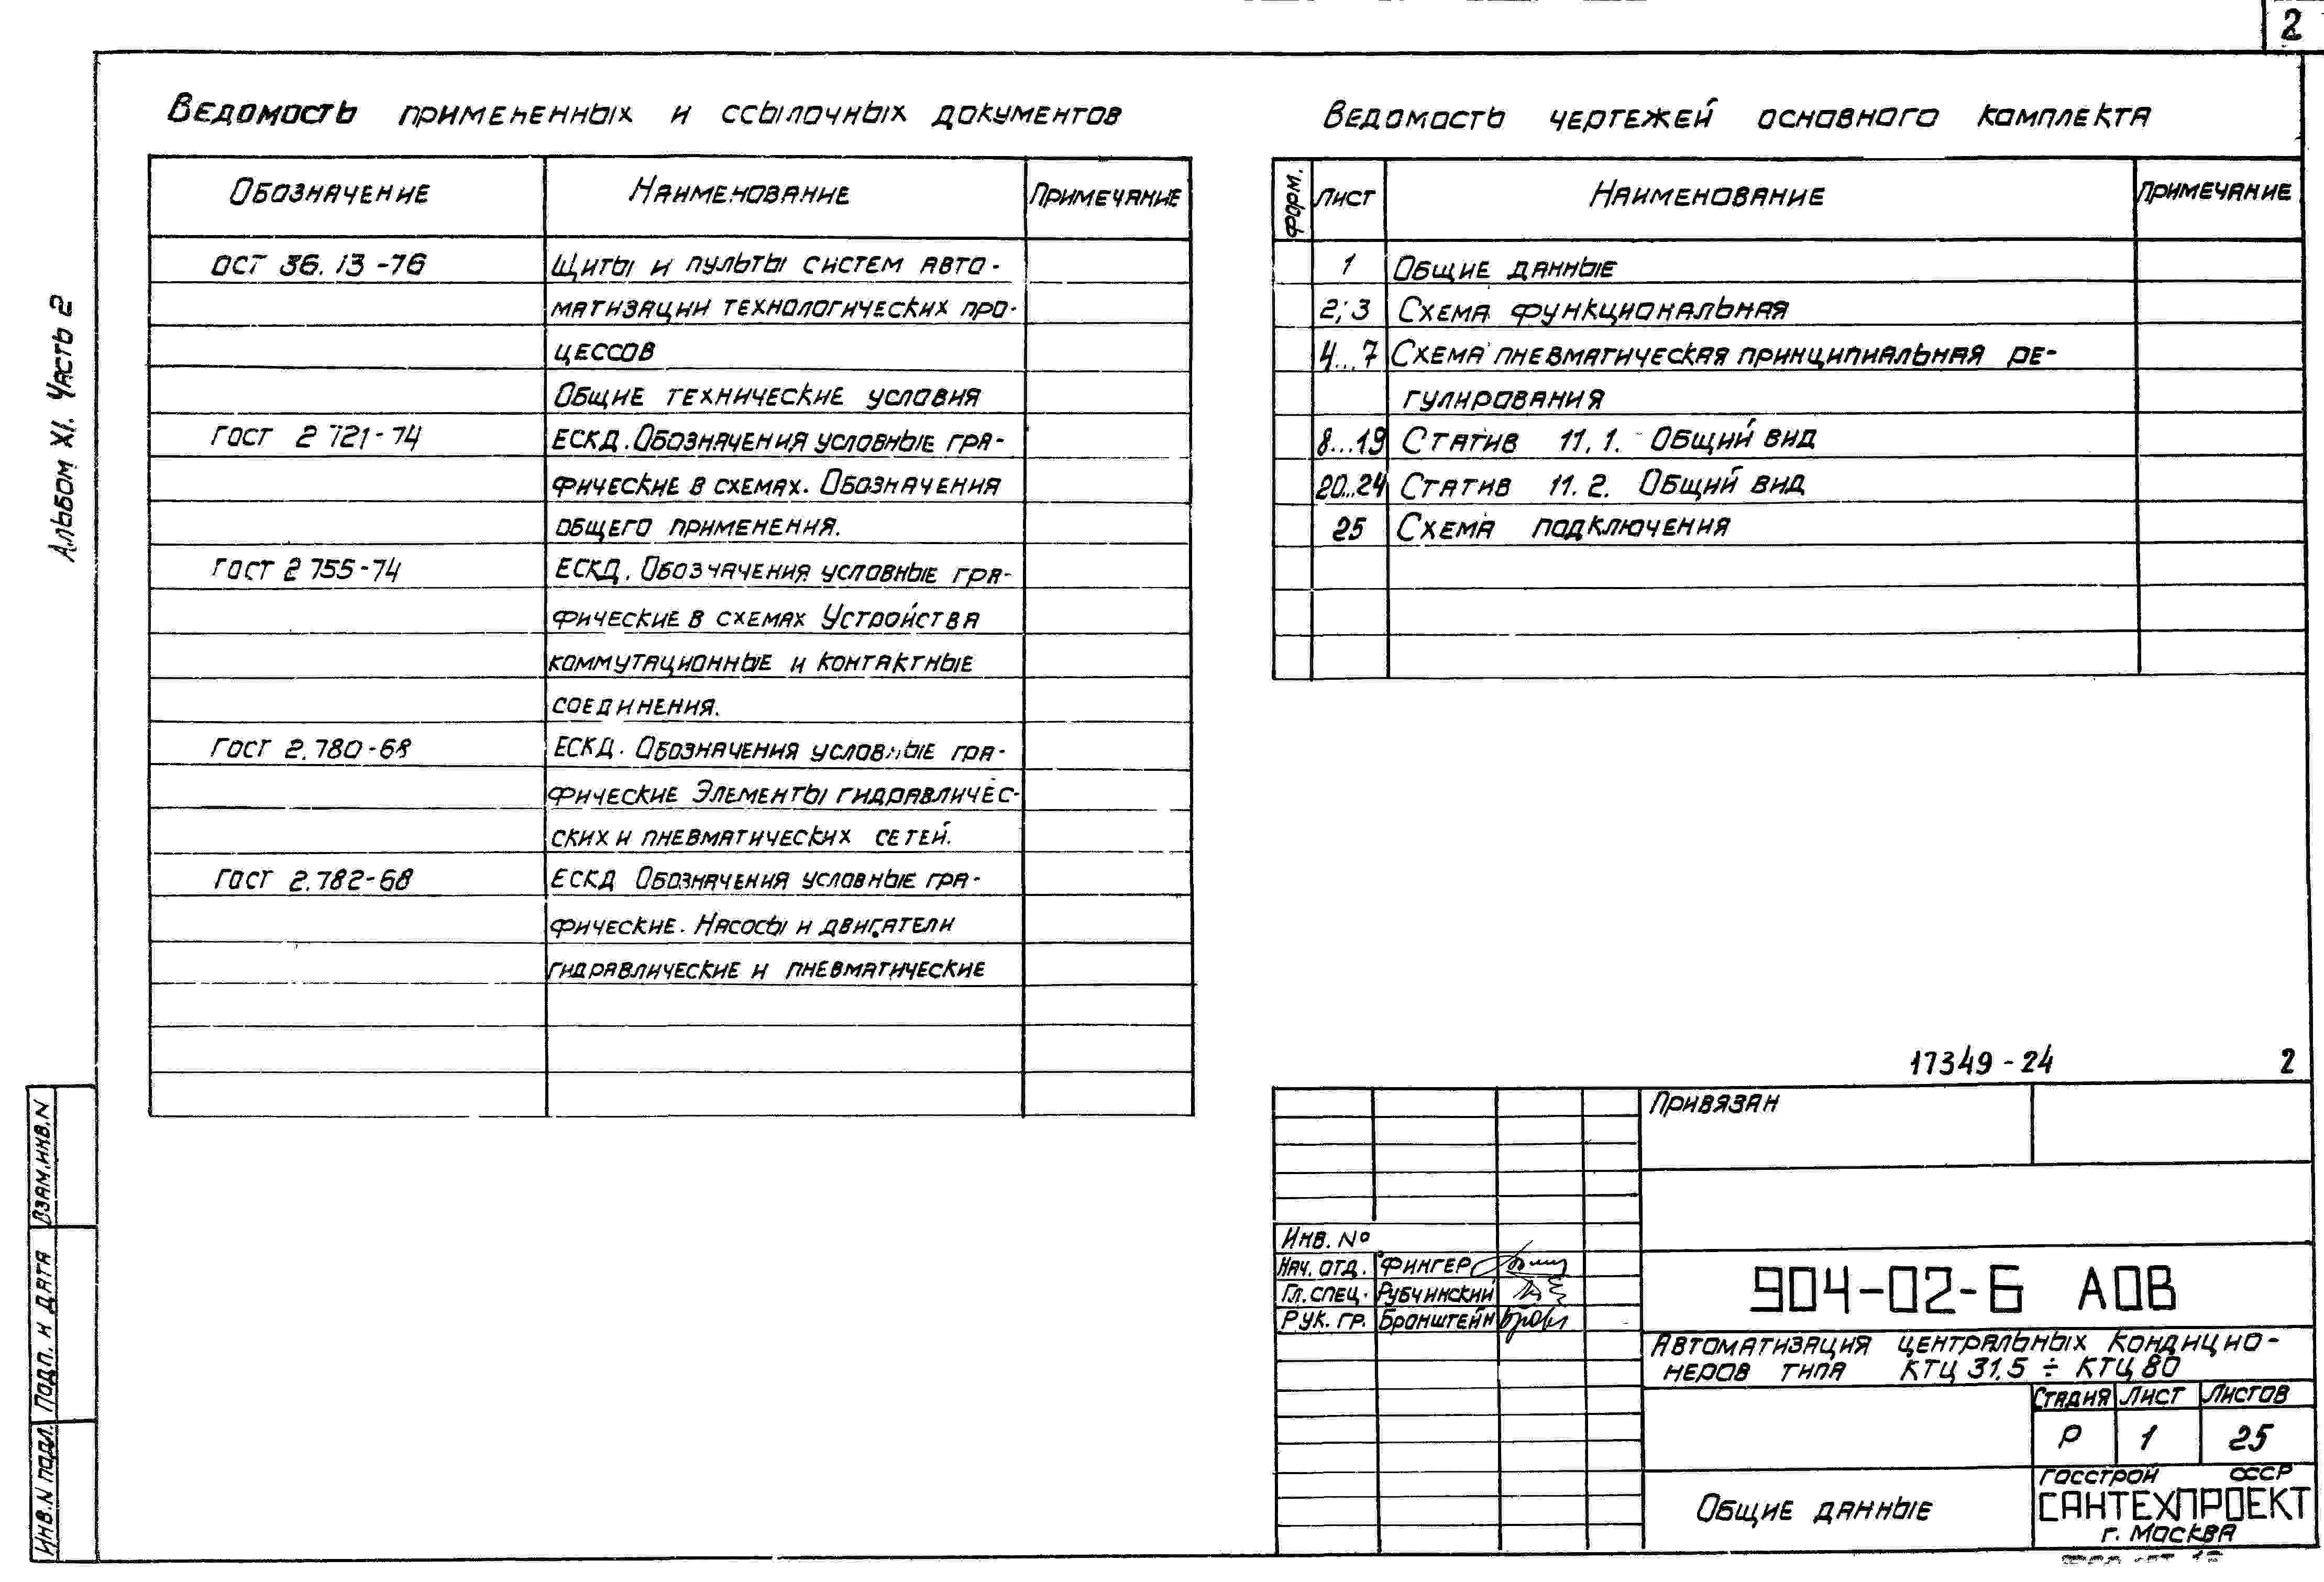 2
Альбом XI. Часть 2
Ведомость примененных и ссылочных документов
Обозначение Наименование Примечание
ОСТ 36.13-76 Щиты и пульты систем авто-
матизации технологических про-
цессов
Общие технические условия
ГОСТ 2 721-74 ЕСКД. Обозначения условные гра-
фические в схемах. Обозначения
общего применения.
ГОСТ 2 755-74 ЕСКД. Обозначения условные гра-
фические в схемах Устройства
коммутационные и контактные
соединения.
ГОСТ 2.780-68 ЕСКД. Обозначения условные гра-
фические Элементы гидравличес-
ских и пневматических сетей.
ГОСТ 2.782-68 ЕСКД Обозначения условные гра-
фические. Насосы и двигатели
гидравлические и пневматические
Ведомость чертежей основного комплекта
Форм. Лист Наименование Примечание
1 Общие данные
2; 3 Схема функциональная
4...7 Схема пневматическая принципиальная ре-
гулирования
8...19 Статив 11.1. Общий вид
20...24 Статив 11.2. Общий вид
25 Схема подключения
17349-24 2
Привязан
Инв. №
Нач. отд. Фингер
Гл. спец. Рубчинский
Рук. гр. Бронштейн
904-02-6 АОВ
Автоматизация центральных кондицио-
неров типа КТЦ 31,5 ÷ КТЦ 80
Стадия Лист Листов
Р 1 25
Общие данные
Госстрой СССР
САНТЕХПРОЕКТ
г. Москва
Взам. инв. N
Подп. и дата
Инв. N подл.